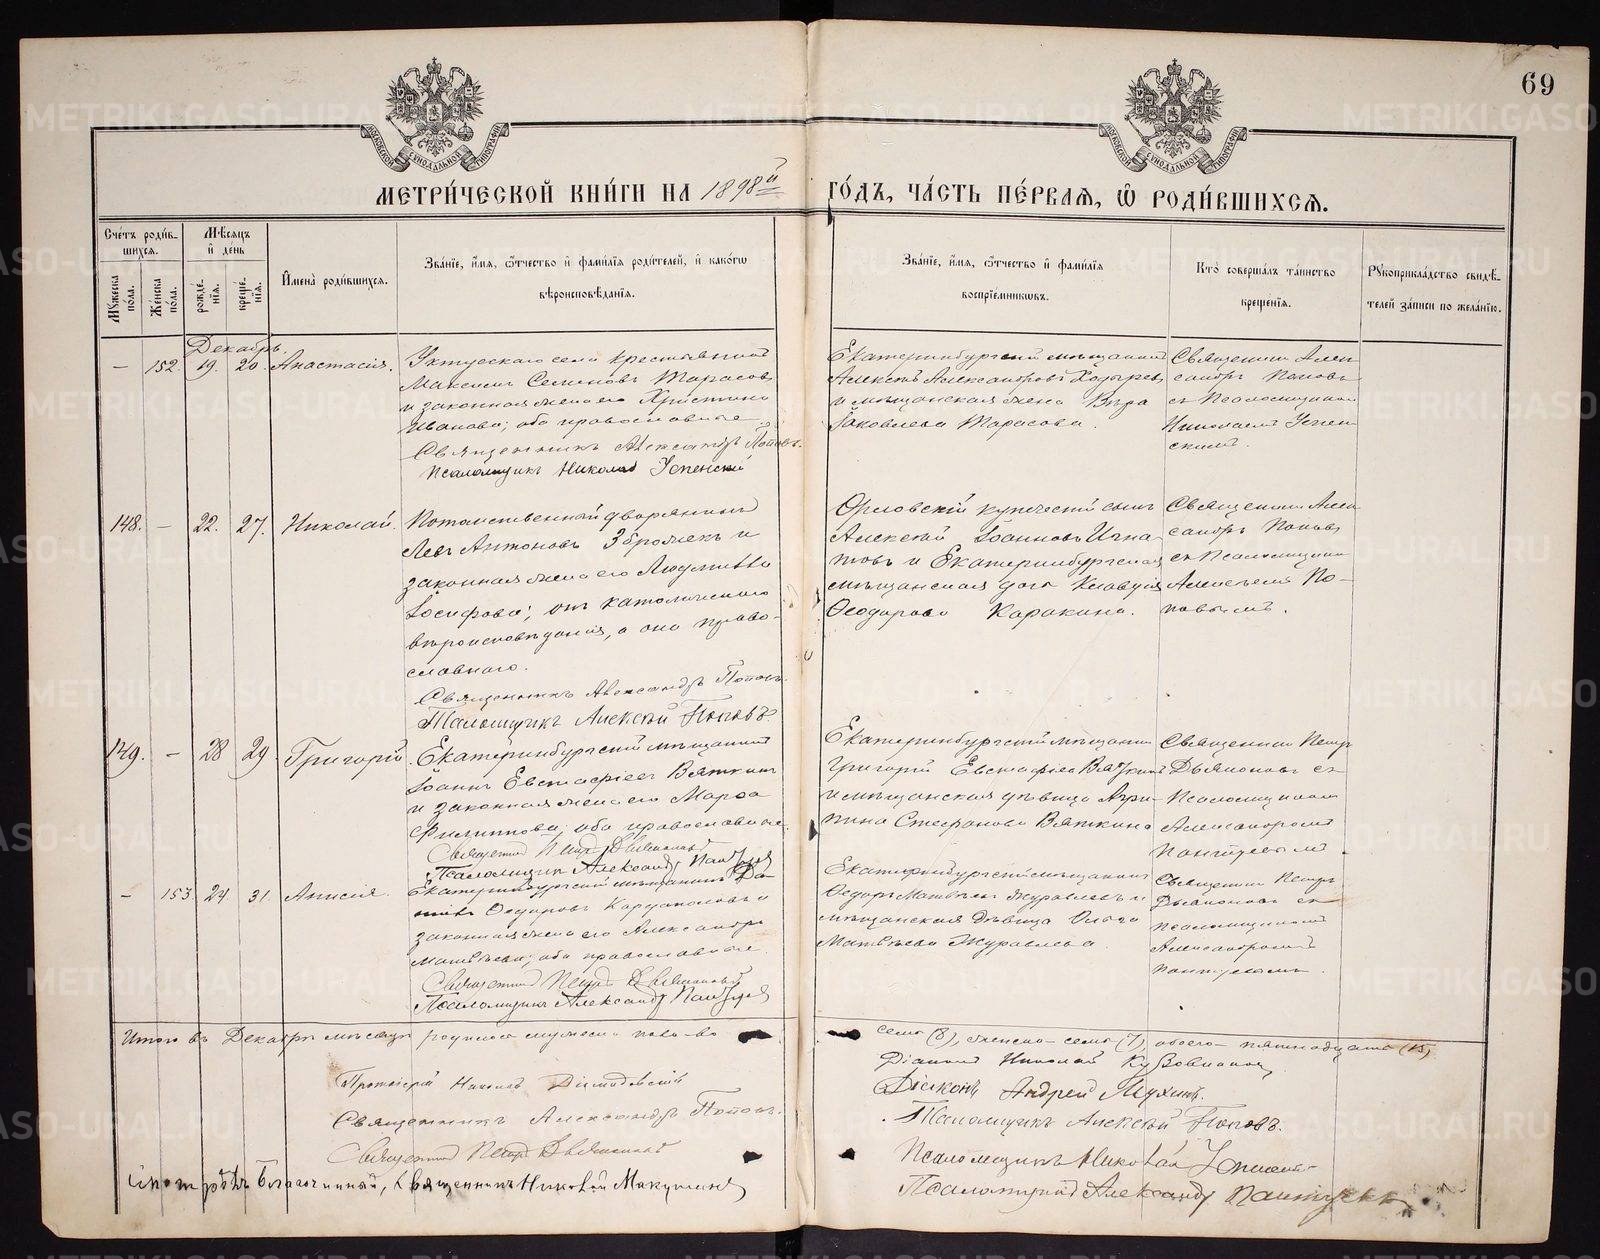 69
МОСКОВСКОЙ СѴНОДАЛЬНОЙ ТИПОГРАФІИ
МОСКОВСКОЙ СѴНОДАЛЬНОЙ ТИПОГРАФІИ
МЕТРИ́ЧЕСКОЙ КНИ́ГИ НА 1898й ГО́ДЪ, ЧА́СТЬ ПЕ́РВАѦ, Ѽ РОДИ́ВШИХСѦ.
Сче́тъ роди́в-
шихсѧ.
Мѣ́сѧцъ
и҆ де́нь
Мꙋ́жеска по́ла.
Же́нска по́ла.
рожде́-
нїѧ.
креще́-
нїѧ.
И҆мена̀ роди́вшихсѧ.
Зва́нїе, и҆́мѧ, ѻ҆́тчество и҆ фамѝлїѧ роди́телей, и҆ како́гѡ
вѣроисповѣ́данїѧ.
Зва́нїе, и҆́мѧ, ѻ҆́тчество и҆ фамѝлїѧ
воспрїе́мникѡвъ.
Кто̀ соверша́лъ та́инство
креще́нїѧ.
Рꙋкоприкла́дство свидѣ́-
телей за́писи по жела́нїю.
Декабрь.
— 152. 19. 20. Анастасія.
Уктусскаго села крестьянинъ
Максимъ Семеновъ Тарасовъ
и законная жена его Христина
Иванова; оба православные
Священникъ Александръ Поповъ.
Псаломщикъ Николай Успенскій
Екатеринбургскій мѣщанинъ
Алексѣй Александровъ Ходыревъ
и мѣщанская жена Вѣра
Іаковлева Тарасова.
Священникъ Алек-
сандръ Поповъ
съ Псаломщикомъ
Николаемъ Успен-
скимъ.
148. — 22. 27. Николай.
Потомственный дворянинъ
Левъ Антоновъ Зброжекъ и
законная жена его Людмилла
Іосифова; онъ католическаго
вѣроисповѣданія, а она право-
славнаго.
Священникъ Александръ Поповъ.
Псаломщикъ Алексѣй Поповъ
Орловскій купеческій сынъ
Алексѣй Іоанновъ Игна-
товъ и Екатеринбургская
мѣщанская дочь Клавдія
Ѳеодорова Каракина.
Священникъ Алек
сандръ Поповъ
съ Псаломщикомъ
Алексѣемъ По-
повымъ.
149. — 28 29 Григорій
Екатеринбургскій мѣщанинъ
Іоаннъ Евстафіевъ Вяткинъ
и законная жена его Марѳа
Филиппова; оба православные.
Священникъ Петръ Дьяконовъ
Псаломщикъ Александръ
Екатеринбургскій мѣщанинъ
Григорій Евстафіевъ Вяткинъ
и мѣщанская дѣвица Агри-
пина Стефанова Вяткина
Священникъ Петръ
Дьяконовъ съ
Псаломщикомъ
Александромъ
— 153. 24 31. Анисія.
Екатеринбургскій мѣщанинъ
Ѳедоровъ Каргаполовъ и
законная жена его Александра
Матвѣева; оба православные
Священникъ Петръ Дьяконовъ
Псаломщикъ Александръ
Екатеринбургскій мѣщанинъ
Ѳедоръ Матвѣевъ Журавлевъ и
мѣщанская дѣвица Ольга
Матвѣева Журавлева.
Священникъ Петръ
Дьяконовъ съ
псаломщикомъ
Александромъ
Итого въ Декабрѣ мѣсяцѣ родилось мужеска пола-во
(8), женска - семь (7), обоего - пятнадцать (15)
Протоіерей
Діаконъ Николай
Священникъ Александръ Поповъ.
Діаконъ Андрей Мухинъ.
Псаломщикъ Алексѣй Поповъ.
Священникъ Петръ Дьяконовъ
Псаломщикъ Николай Успенскій
Смотрѣлъ Благочинный, Священникъ Николай
Псаломщикъ Александръ
METRIKI.GASO-URAL.RU